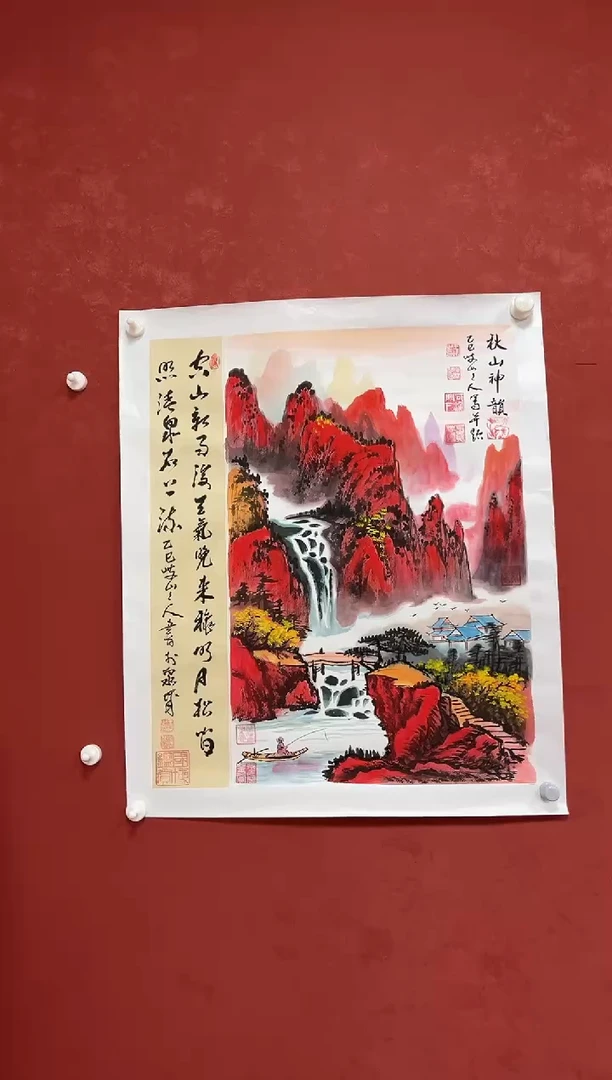 秋山神韻
乙巳岐山之人寫并题
空山新雨後天氣晚来秋明月松间
照清泉石上流
乙巳岐山之人書於